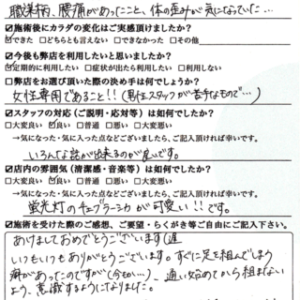 職業柄、腰痛があったこと、体の歪みが気になっていた…
☑施術後にカラダの変化はご実感頂けましたか?
☑できた □どちらとも言えない □できなかった □その他
☑今後も弊店を利用したいと思いましたか?
☑定期的に利用したい □症状が出たら利用したい □利用しない
□弊店をお選び頂いた際の決め手は何でしょうか?
女性専用であること!!(男性スタッフが苦手なもので…)
☑スタッフの対応(ご説明・応対等)は如何でしたか?
□大変良い ☑良い □普通 □悪い □大変悪い
→気になった・気に入った点などございましたら、ご記入頂ければ幸いです。
いろんな話が出来るのが良いです。
☑店内の雰囲気(清潔感・音楽等)は如何でしたか?
□大変良い ☑良い □普通 □悪い □大変悪い
→気になった・気に入った点などございましたら、ご記入頂ければ幸いです。
蛍光灯のチェブラーシカが可愛い!!です。
☑施術を受けた際のご感想、ご要望・らくがき等ご自由にご記入下さい。
あけましておめでとうございます
いつもいつもありがとうございます。すぐに足を組んでしまう
癖があったのですが(今も…)、通い始めてから組まない
よう、意識するようになりました。